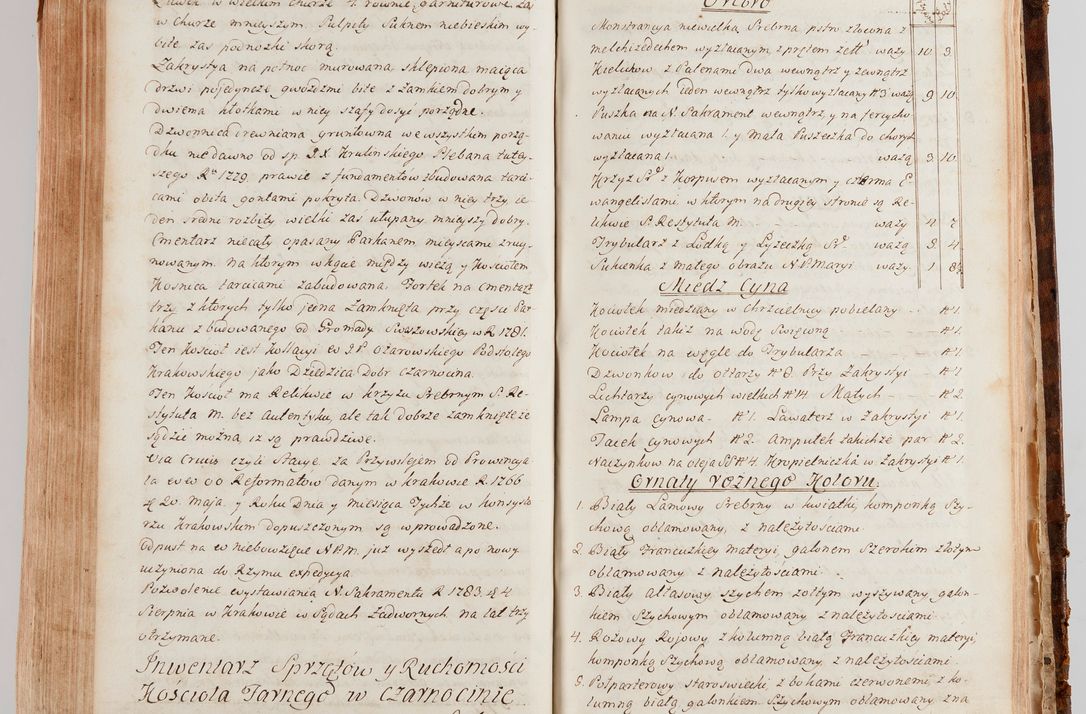 Ławek w wielkim Churze 4. równie garniturowe zaś
w churze mnieyszym. Pulpity Suknem niebieskim wy-
bite, zas podnożki skorą.
Zakrystya na pułnoc murowana, sklepiona maiąca
drzwi pojedyncze gwoźdźmi bite z zamkiem dobrym y
dwiema kłotkami w niey szafy dosyć porządne.
Dzwonnica drewniana gruntowna we wszystkim porzą-
dku niedawno od sp. J.X. Krulinskiego Plebana tutey-
szego Rku 1779. prawie z fundamentow zbudowana tarci-
cami obita gontami pokryta. Dzwonów w niey trzy, ie-
den sredni rozbity, wielki zas utupany mnieyszy dobry.
Cmentarz niecały opasany Parkanem mieyscami zruy-
nowanym. na ktorym w kącie między wieżą y Kosciołem
Kosnica tarcicami zabudowana. Fortek na Cmentarz
trzy z ktorych tylko jedna Zamknięta przy części Par-
kanu zbudowanego od Gromady Swoszowskiey w R. 1781.
Ten Kosciół iest Kollacyi W. J.P. Ożarowskiego Podstolego
Krakowskiego jako Dziedzica Dobr Czarnocina.
Ten Kosciół ma Relikwie w krzyżu Srebrnym S. Re-
stytuta M. bez autentyku, ale tak dobrze zamknięte że
sądzić można iz są prawdziwe.
Via Crucis czyli Stacye. za Przywilejem od Prowincya-
ła WW OO Reformatów danym w Krakowie R. 1766
d. 20. maja. y Roku Dnia y miesiąca Tychże w Konsysto-
rzu Krakowskim dopuszczonym są wprowadzone.
Odpust na W niebowzięcie N.P.M. już wyszedł a po nowy
uczyniona do Rzymu expedycya.
Pozwolenie wystawiania N. Sakramentu R. 1783. d. 4
Sierpnia w Krakowie w Sądach Zadwornych na lat trzy
otrzymane.
Inwentarz Sprzętów y Ruchomości
Kościoła Farnego w Czarnocinie
Srebro
Monstrancya niewielka Srebrna pstro złocona z
melchizedechem wyzłacanym z prętem żell. waży 10 3
Kielichow z Patenami dwa wewnątrz y zewnątrz
wyzłacanych ieden wewnątrz tylko wyzłacany N 3 ważą 9 10
Puszka na N. Sakrament wewnątrz y na fercycho-
waniu wyzłacana 1. y Mała Puszeczka do chorych
wyzłacana 1. ważą 3 10
Krzyż Sr. z Korpusem wyzłacanym y czterma E-
wangelistami w ktorym na drugiey stronie są Re-
likwie S. Restytuta M. waży 4 7
Trybularz z Lodką y Łyżeczką Sr. ważą 8 4
Sukienka z małego obrazu N.P. Maryi waży 1 8½
Miedz Cyna
Kociołek miedziany w Chrzcielnicy pobielany N1.
Kociołek takiż na wodę Swięconą N1.
Kociołek na węgle do Trybularza N1.
Dzwonkow do ołtarzy N 8. Przy Zakrystyi N 1
Lichtarzy cynowych wielkich N 14. Małych N 2.
Lampa cynowa N 1. Lawaterz w Zakrystyi N 1.
Tacek cynowych N 2. Ampułek takichże par N 2.
Naczynkow na oleja SS N 4. Kropielniczka w Zakrystyi N 1.
Ornaty rożnego Koloru.
1. Biały Lamowy Srebrny w kwiatki, komponką Szy-
chową oblamowany, z należytościami
2. Biały Francuzkiey materyi, galonem Szerokim złotym
oblamowany z należytościami.
3. Biały atłasowy szychem żołtym wyszywany, galon-
kiem Szychowym oblamowany z należytościami
4. Rożowy Rojowy, z kolumną białą Francuzkiey materyi,
komponką Szychową oblamowany, z należytościami.
5. Połparterowy staroswiecki, z bokami czerwonemi z ko-
lumną białą galonkiem Szychowym oblamowany z na